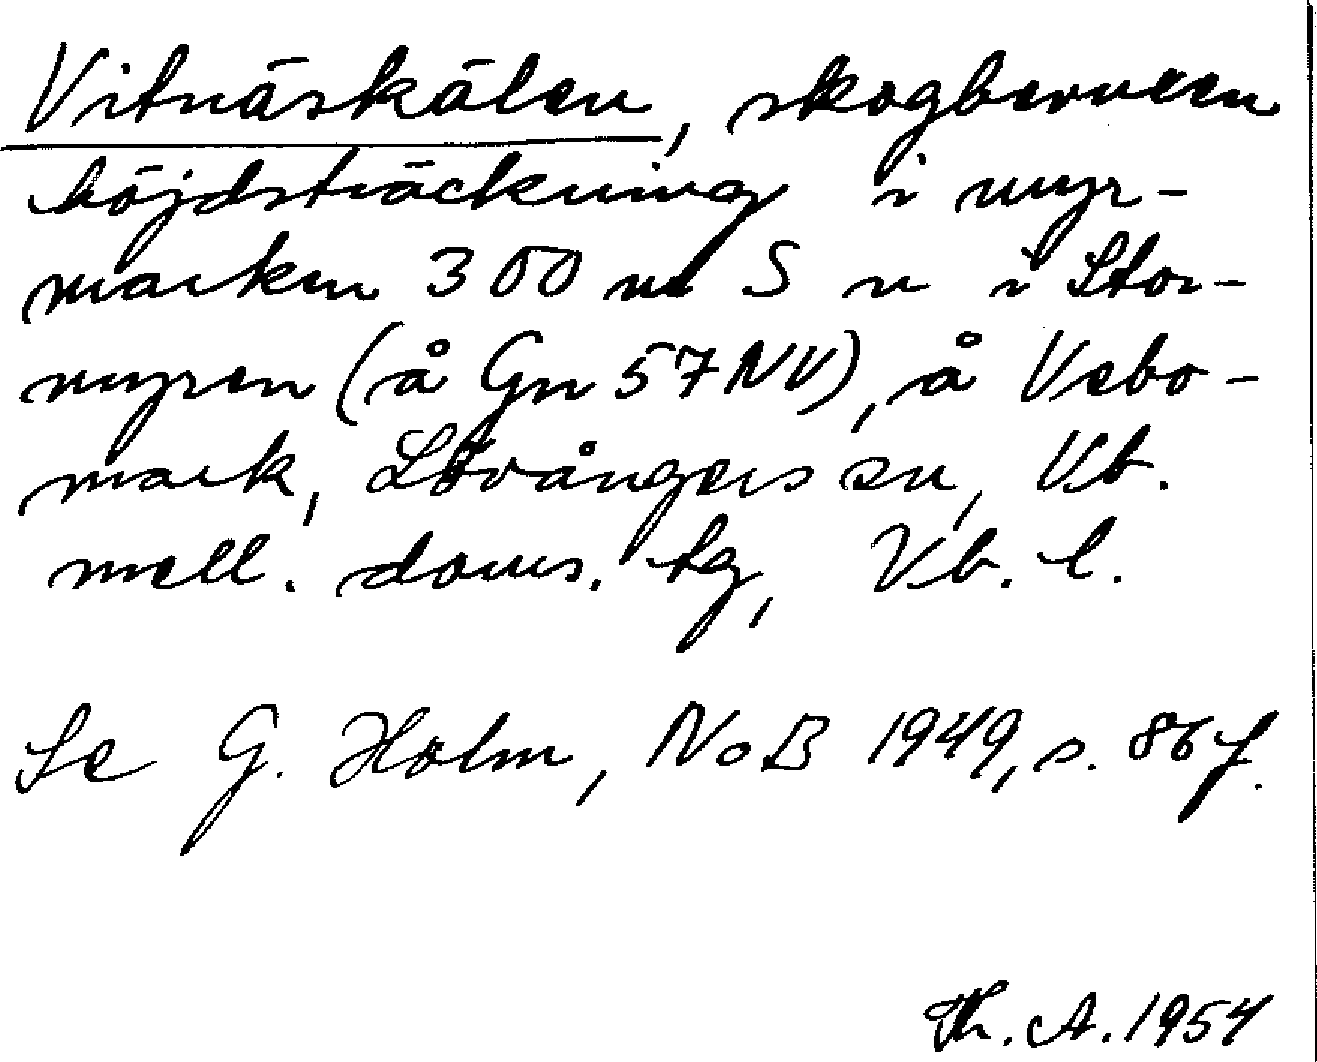 Vitnäskälen, skogbevuxen
höjdsträckning i myr-
marken 300 m S n i Stor-
myren (å Gn 57 NV), å Vebo-
mark, Lövångers sn, Vb.
mell. doms. tg, Vb. l.
Se G. Holm, NoB 1949, s. 86 f.
Th. A. 1954